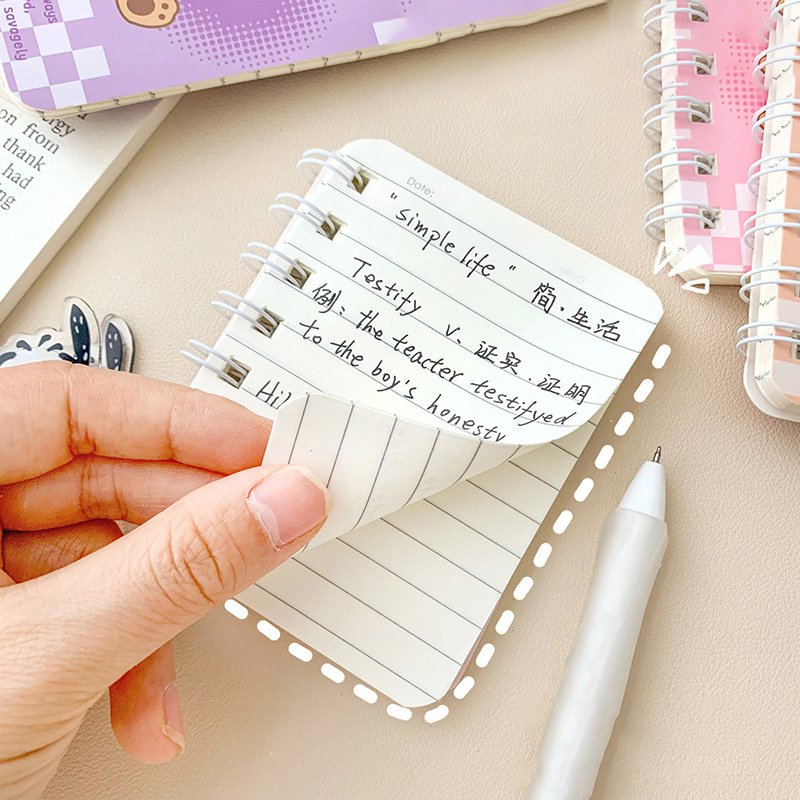 Date:
"simple life" 简.生活
Testify v. 证实.证明
例: the teacter testifyed
to the boy's honesty
Hi
savagely
from
thank
had